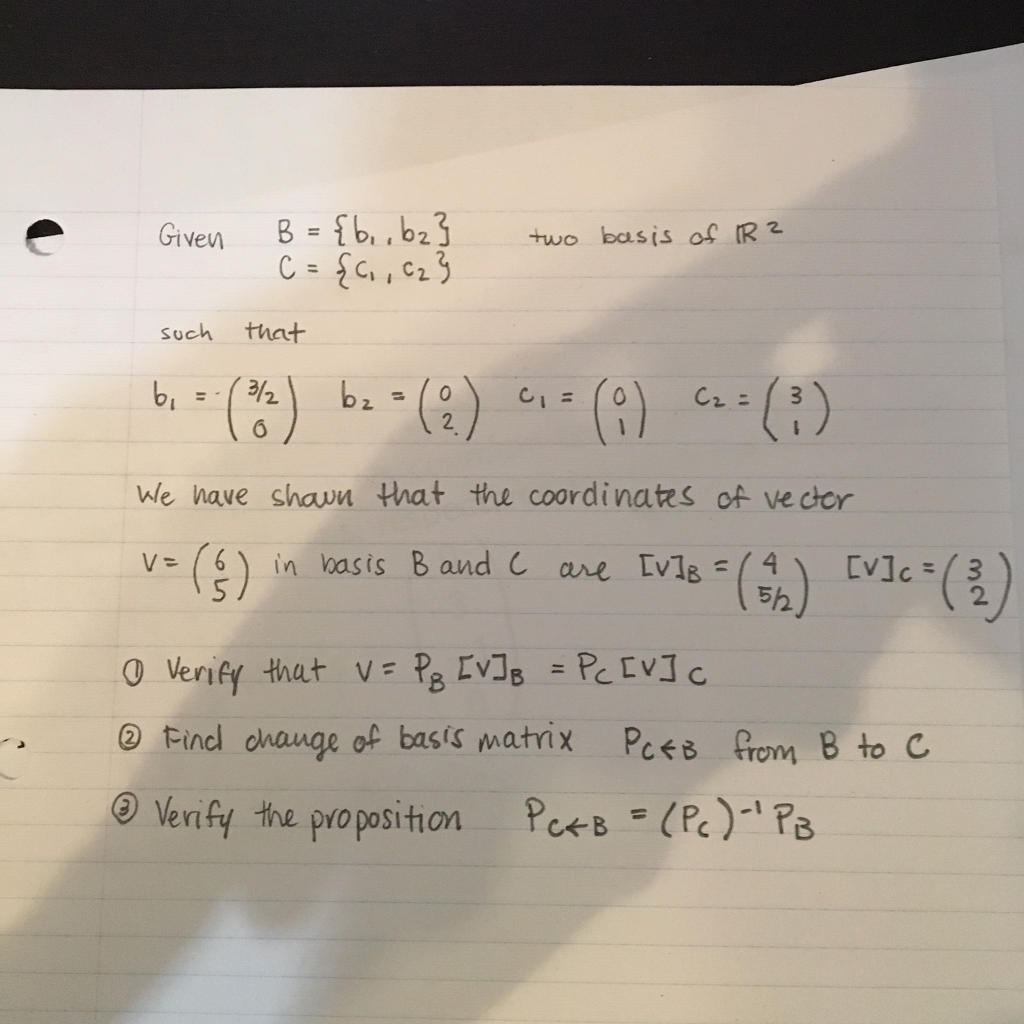 Given B = {b₁, b₂} two basis of ℝ²
C = {c₁, c₂}
such that
b₁ = (3/2 0) b₂ = (0 2) c₁ = (0 1) c₂ = (3 1)
We have shown that the coordinates of vector
V = (6 5) in basis B and C are [V]B = (4 5/2) [V]C = (3 2)
① Verify that V = PB [V]B = PC [V]C
② Find change of basis matrix PC←B from B to C
③ Verify the proposition PC←B = (PC)⁻¹ PB